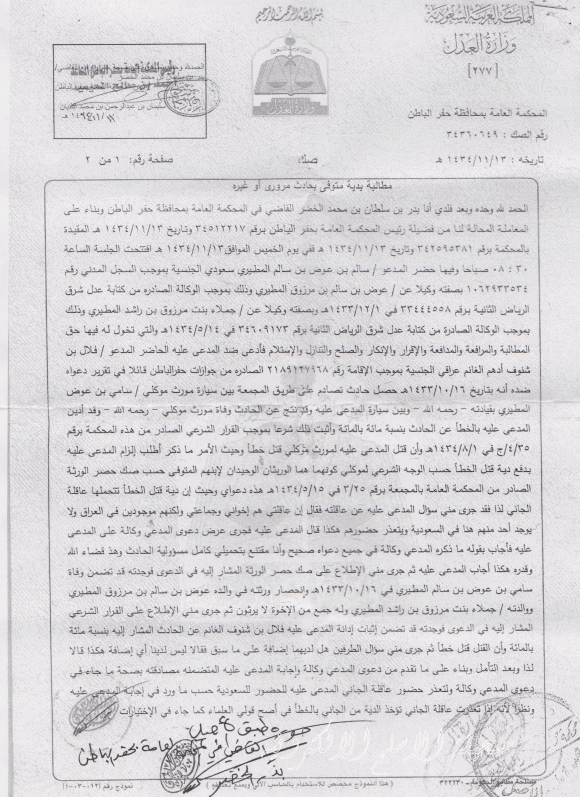 بسم الله الرحمن الرحيم
المملكة العربية السعودية
وزارة العدل
[٢٧٧]
المحكمة العامة بمحافظة حفر الباطن
رقم الصك : ٣٤٣٦٠٦٤٩
تاريخه : ١٤٣٤/١١/١٣ هـ
صك
صفحة رقم: ١ من ٢
مطالبة بدية متوفى بحادث مروري أو غيره
الحمد لله وحده وبعد فلدي أنا بدر بن سلطان بن محمد الخضر القاضي في المحكمة العامة بمحافظة حفر الباطن وبناء على
المعاملة المحالة لنا من فضيلة رئيس المحكمة العامة بحفر الباطن برقم ٣٤٥١٢٢١٧ وتاريخ ١٤٣٤/١١/١٣ هـ المقيدة
بالمحكمة برقم ٣٤٢٥٩٥٣٨١ وتاريخ ١٤٣٤/١١/١٣ هـ ففي يوم الخميس الموافق١٤٣٤/١١/١٣هـ افتتحت الجلسة الساعة
٣٠ : ٠٨ صباحا وفيها حضر المدعو / سالم بن عوض بن سالم المطيري سعودي الجنسية بموجب السجل المدني رقم
١٠٦٢٩٣٣٥٣٤ بصفته وكيلا عن / عوض بن سالم بن مرزوق المطيري وذلك بموجب الوكالة الصادره من كتابة عدل شرق
الرياض الثانية برقم ٣٣٤٤٤٥٥٨ في ١٤٣٣/١٢/١هـ وبصفته وكيلا عن / جملاء بنت مرزوق بن راشد المطيري وذلك
بموجب الوكالة الصادرة من كتابة عدل شرق الرياض الثانية برقم ٣٤٦٠٩١٧٣ في ١٤٣٤/٥/١٤هـ والتي تخول له فيها حق
المطالبة والمرافعة والمدافعة والإقرار والإنكار والصلح والتنازل والإستلام فأدعى ضد المدعى عليه الحاضر المدعو / فلال بن
شنوف أدهم الغانم عراقي الجنسية بموجب الإقامة رقم ٢١٨٩١٢٧٩٦٨ الصادره من جوازات حفرالباطن قائلا في تقرير دعواه
ضده أنه بتاريخ ١٤٣٣/١٠/١٦هـ حصل حادث تصادم على طريق المجمعة بين سيارة مورث موكلي / سامي بن عوض
المطيري بقيادته - رحمه الله - وبين سيارة المدعى عليه وقد نتج عن الحادث وفاة مورث موكلي - رحمه الله - وقد أدين
المدعى عليه بالخطأ عن الحادث بنسبة مائة بالمائة وأثبت ذلك شرعا بموجب القرار الشرعي الصادر من هذه المحكمة برقم
٤/٣٥/ج في ١٤٣٤/٨/١هـ وأن قتل المدعى عليه لمورث موكلي قتل خطأ وحيث الأمر ما ذكر أطلب إلزام المدعى عليه
بدفع دية قتل الخطأ حسب الوجه الشرعي لموكلي كونهما هما الوريثان الوحيدان لإبنهم المتوفى حسب صك حصر الورثة
الصادر من المحكمة العامة بالمجمعة برقم ٣/٢٥ في ١٤٣٤/٥/١٥هـ هذه دعواي وحيث إن دية قتل الخطأ تتحملها عاقلة
الجاني لذا فقد جرى مني سؤال المدعى عليه عن عاقلته فقال إن عاقلتي هم إخواني وجماعتي ولكنهم موجودين في العراق ولا
يوجد أحد منهم هنا في السعودية ويتعذر حضورهم هكذا قال المدعى عليه فجرى عرض دعوى المدعي وكالة على المدعى
عليه فأجاب بقوله ما ذكره المدعي وكالة في جميع دعواه صحيح وأنا مقتنع بتحميلي كامل مسؤولية الحادث وهذ قضاء الله
وقدره هكذا أجاب المدعى عليه ثم جرى مني الإطلاع على صك حصر الورثة المشار إليه في الدعوى فوجدته قد تضمن وفاة
سامي بن عوض بن سالم المطيري في ١٤٣٣/١٠/١٦هـ وانحصار ورثته في والده عوض بن سالم بن مرزوق المطيري
ووالدته / جملاء بنت مرزوق بن راشد المطيري وله جمع من الإخوة لا يرثون ثم جرى مني الإطلاع على القرار الشرعي
المشار إليه في الدعوى فوجدته قد تضمن إثبات إدانة المدعى عليه فلال بن شنوف الغانم عن الحادث المشار إليه بنسبة مائة
بالمائة وأن القتل قتل خطأ ثم جرى مني سؤال الطرفين هل لديهما إضافة على ما سبق فقالا ليس لدينا أي إضافة هكذا قالا
لذا وبعد التأمل وبناء على ما تقدم من دعوى المدعي وكالة وإجابة المدعى عليه المتضمنه مصادقته بصحة ما جاء في
دعوى المدعي وكالة ولتعذر حضور عاقلة الجاني المدعى عليه للحضور للسعودية حسب ما ورد في إجابة المدعى عليه
ونظرا لأنه إذا تعذرت عاقلة الجاني تؤخذ الدية من الجاني بالخطأ في أصح قولي العلماء كما جاء في الإختيارات
( هذا النموذج مخصص للاستخدام بالحاسب الآلي ويمنع تغليفه )
نموذج رقم (١٢-٠٣-١٠)